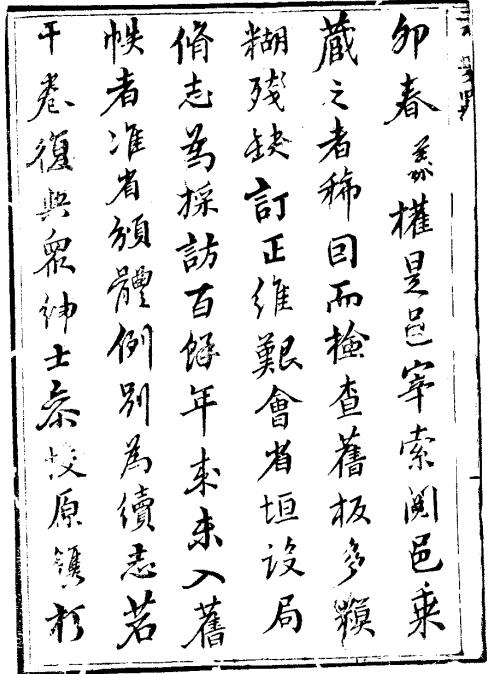 卯春權是邑宰索閱邑乘
藏之者稀囙而檢查舊板多糢
糊殘缺訂正維艱會省垣設局
脩志為採訪百餘年來未入舊
帙者准省頒體例別為續志若
干卷復與眾紳士叅校原鐫